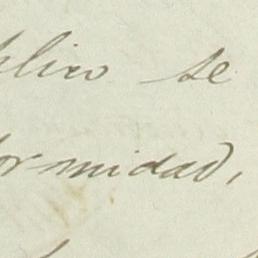 plico se
ormidad,